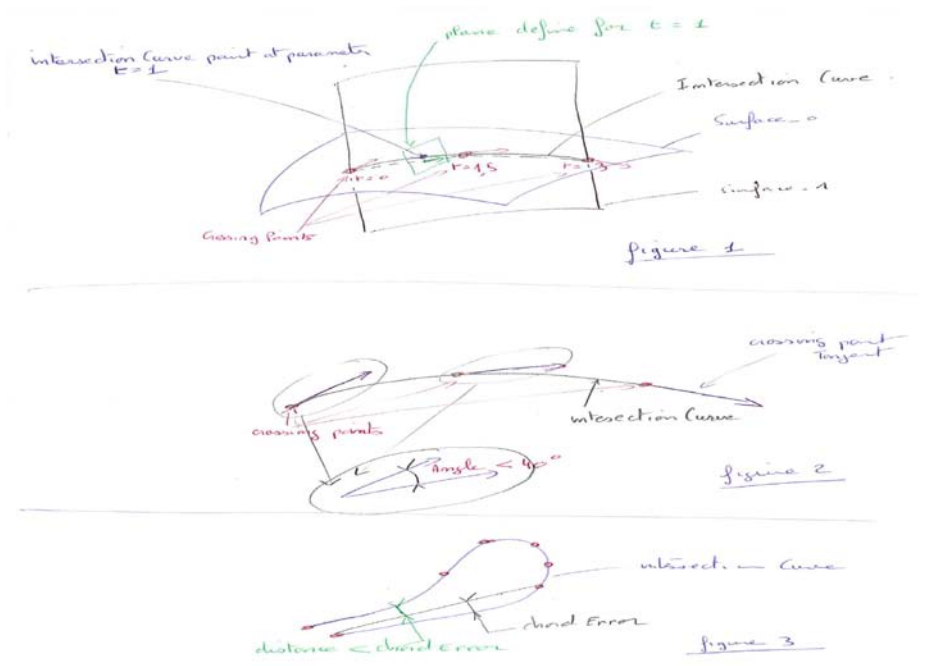 plane define for t = 1
intersection Curve point at parameter
t = 1
Intersection Curve
Surface_0
t=0
t=1,5
surface_1
Crossing Points
figure 1
crossing point
Tangent
crossing points
intesection Curve
Angle < 40°
figure 2
intersection Curve
chord Error
distance < chord Error
figure 3